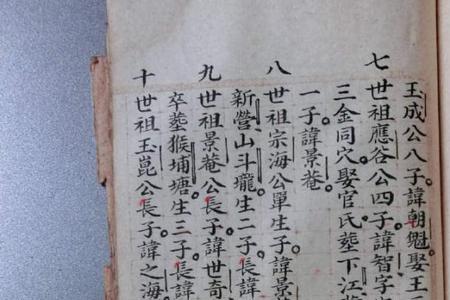 玉成公八子諱朝魁娶王
七世祖應谷公四子諱智字
三金同穴娶官氏塟下江
一子諱景菴
八世祖宗海公單生子諱景
新營山斗壠生二子長諱
九世祖景菴公長子諱世奇
卒塟猴埔塘生三子長諱
十世祖玉崑公長子諱之海